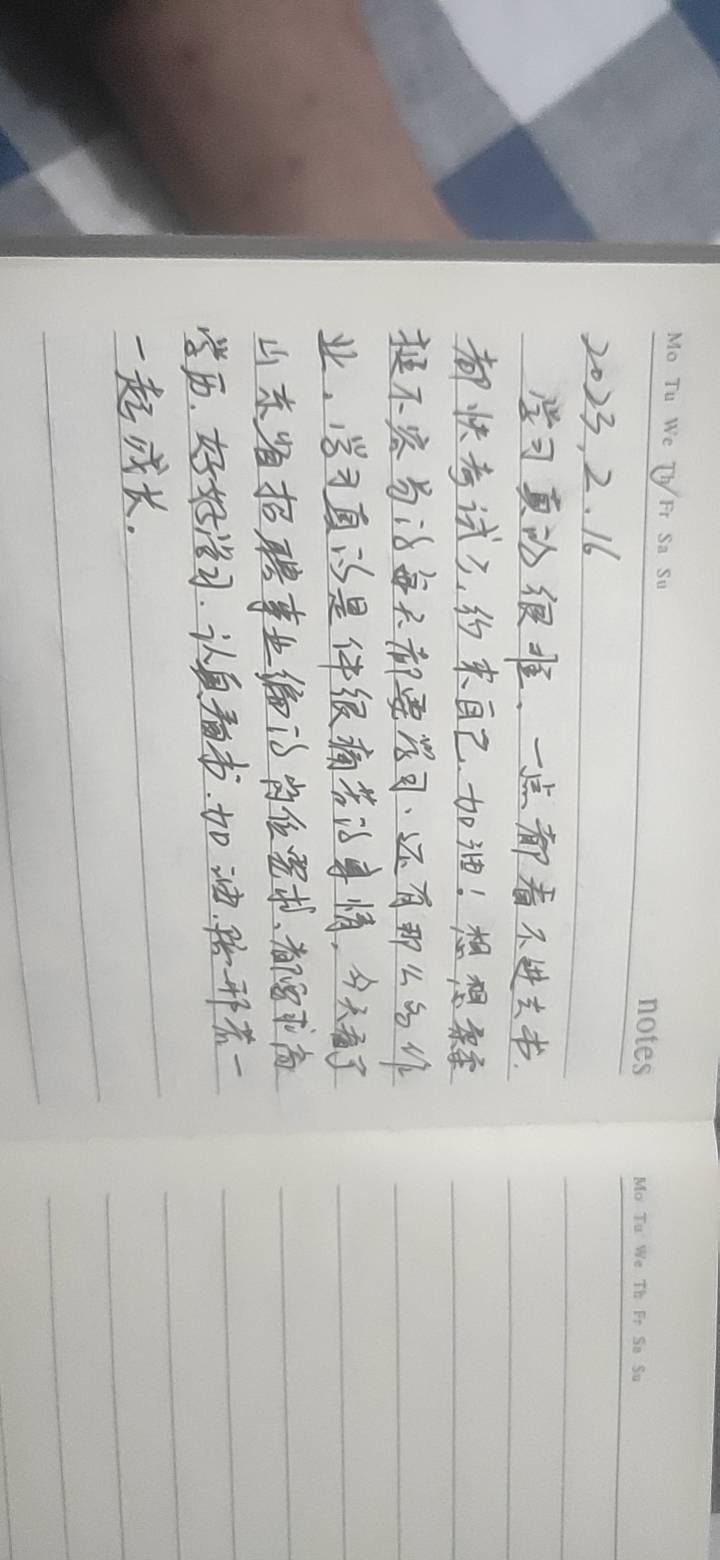 Mo Tu We Th Fr Sa Su
notes
2023.2.16
学习真的很难、一点都看不进去书.
都快考试了,约束自己.加油!想想
挺不容易的每天都要学习、还有那么多作
业。学习真的是件很痛苦的事情,今天看了
山东省招聘事业编的岗位要求、都要求高
学历.好好学习.认真看书.加油.
一起成长。
Mo Tu We Th Fr Sa Su